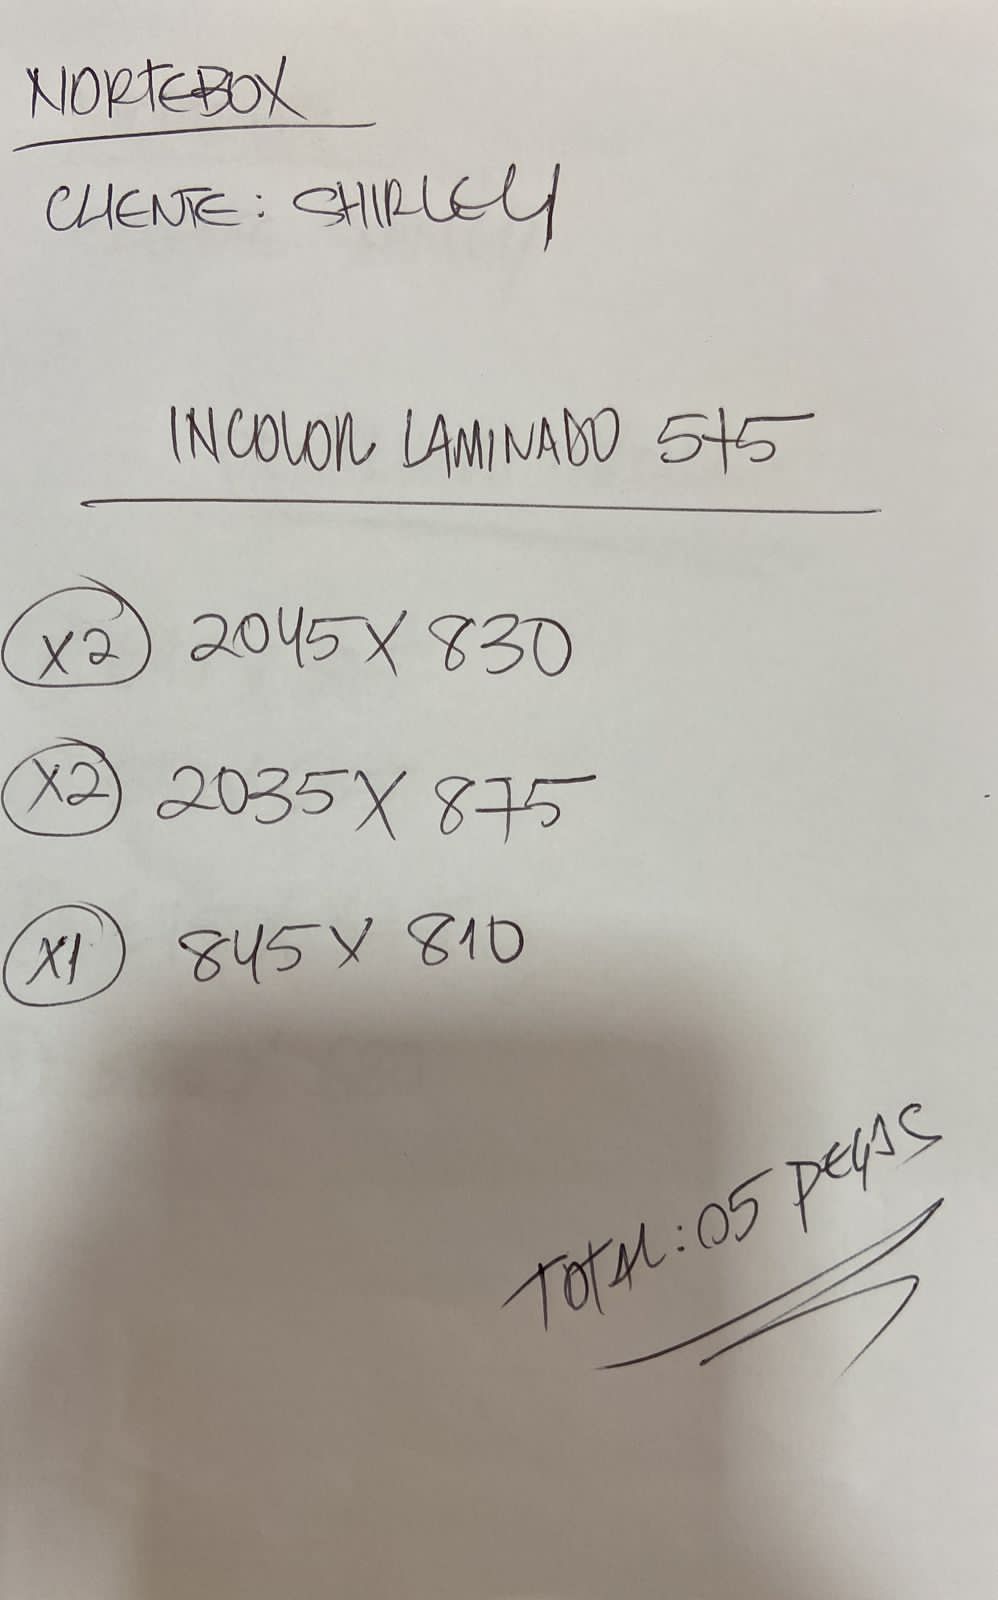 NORTEBOX
CLIENTE: SHIRLEY
INCOLOR LAMINADO 5+5
X2 2045X830
X2 2035X875
X1 845X810
TOTAL: 05 PEÇAS